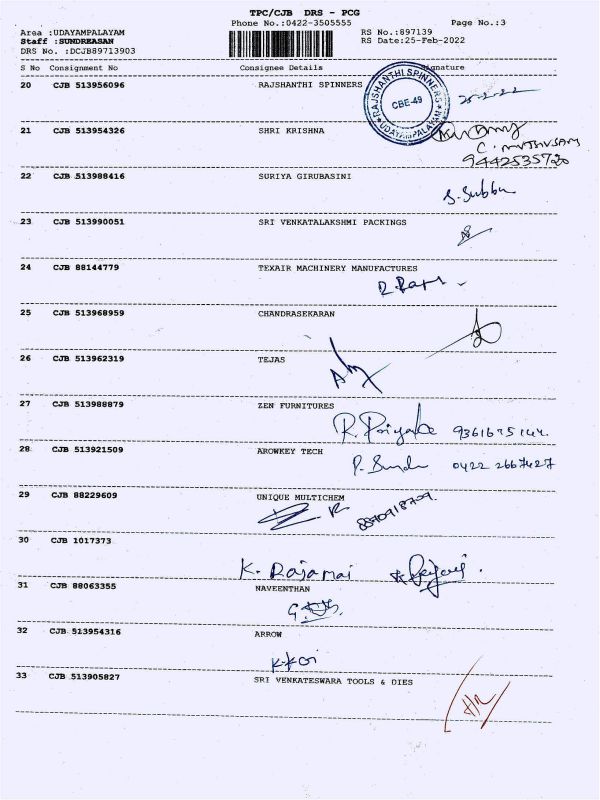 TPC/CJB DRS - PCG
Phone No.:0422-3505555 Page No.:3
Area :UDAYAMPALAYAM RS No.:897139
Staff :SUNDREASAN RS Date:25-Feb-2022
DRS No. :DCJB89713903
S No Consignment No Consignee Details Signature
20 CJB 513956096 RAJSHANTHI SPINNERS
RAJSHANTHI SPINNERS
CBE-49
UDAYAMPALAYAM
25-2-22
21 CJB 513954326 SHRI KRISHNA
C. MUTHUSAMY
22 CJB 513988416 SURIYA GIRUBASINI
S. Subbu
23 CJB 513990051 SRI VENKATALAKSHMI PACKINGS
24 CJB 88144779 TEXAIR MACHINERY MANUFACTURES
25 CJB 513968959 CHANDRASEKARAN
26 CJB 513962319 TEJAS
27 CJB 513988879 ZEN FURNITURES
R. Priyanke
28 CJB 513921509 AROWKEY TECH
0422 2667427
29 CJB 88229609 UNIQUE MULTICHEM
30 CJB 1017373
K. Rajamai
31 CJB 88063355 NAVEENTHAN
32 CJB 513954316 ARROW
33 CJB 513905827 SRI VENKATESWARA TOOLS & DIES